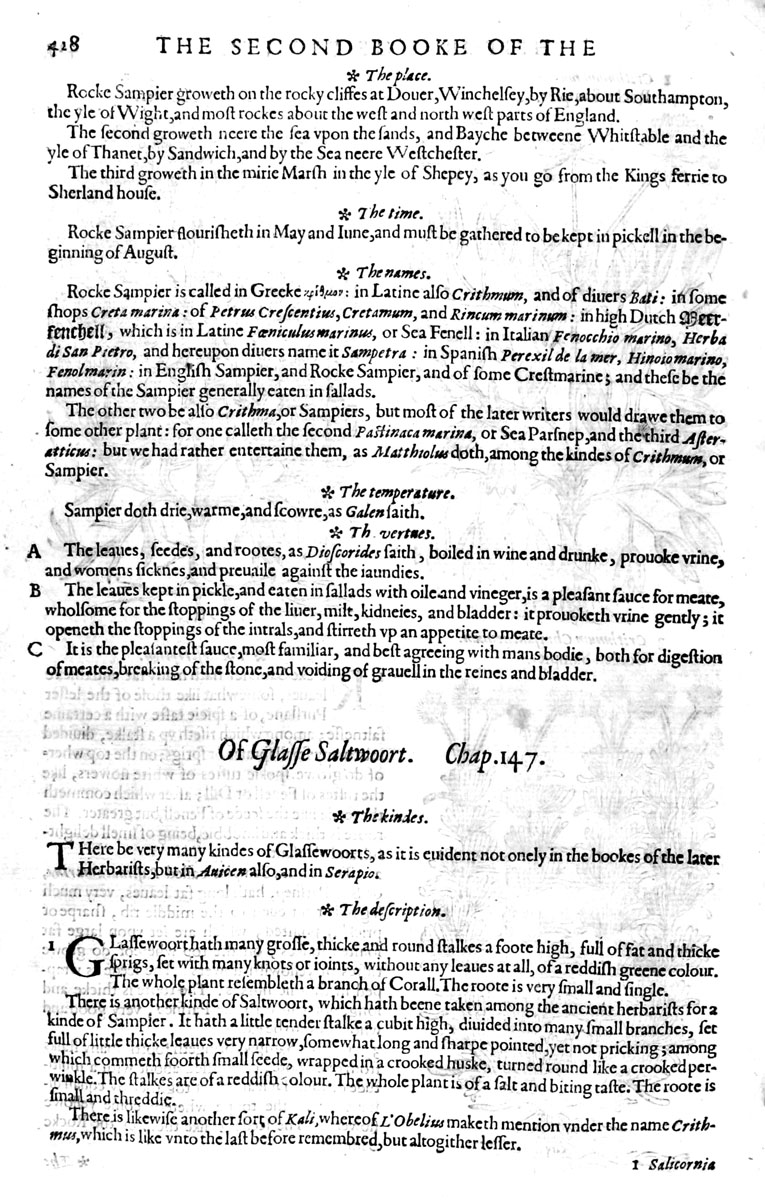 428 THE SECOND BOOKE OF THE
❊ The place.
Rocke Sampier groweth on the rocky cliffes at Douer, Winchelſey, by Rie, about Southampton,
the yle of Wight, and moſt rockes about the weſt and north weſt parts of England.
The ſecond groweth neere the ſea vpon the ſands, and Bayche betweene Whitſtable and the
yle of Thanet, by Sandwich, and by the Sea neere Weſtcheſter.
The third groweth in the mirie Marſh in the yle of Shepey, as you go from the Kings ferrie to
Sherland houſe.
❊ The time.
Rocke Sampier flouriſheth in May and Iune, and muſt be gathered to be kept in pickell in the be-
ginning of Auguſt.
❊ The names.
Rocke Sampier is called in Greeke κρίθμον: in Latine alſo Crithmum, and of diuers Bati: in ſome
ſhops Creta marina: of Petrus Creſcentius, Cretamum, and Rincum marinum: in high Dutch Meer-
fenchell, which is in Latine Fœniculus marinus, or Sea Fenell: in Italian Fenocchio marino, Herba
di San Pietro, and hereupon diuers name it Sampetra: in Spaniſh Perexil de la mer, Hinoio marino,
Fenolmarin: in Engliſh Sampier, and Rocke Sampier, and of ſome Creſtmarine; and theſe be the
names of the Sampier generally eaten in ſallads.
The other two be alſo Crithma, or Sampiers, but moſt of the later writers would drawe them to
ſome other plant: for one calleth the ſecond Paſtinaca marina, or Sea Parſnep, and the third Aſter-
atticus: but we had rather entertaine them, as Matthiolus doth, among the kindes of Crithmum, or
Sampier.
❊ The temperature.
Sampier doth drie, warme, and ſcowre, as Galen ſaith.
❊ Th vertues.
A The leaues, ſeedes, and rootes, as Dioſcorides ſaith, boiled in wine and drunke, prouoke vrine,
and womens ſicknes, and preuaile againſt the iaundies.
B The leaues kept in pickle, and eaten in ſallads with oile and vineger, is a pleaſant ſauce for meate,
wholſome for the ſtoppings of the liuer, milt, kidneies, and bladder: it prouoketh vrine gently; it
openeth the ſtoppings of the intrals, and ſtirreth vp an appetite to meate.
C It is the pleaſanteſt ſauce, moſt familiar, and beſt agreeing with mans bodie, both for digeſtion
of meates, breaking of the ſtone, and voiding of grauell in the reines and bladder.
Of Glaſſe Saltwoort. Chap. 147.
❊ The kindes.
THere be very many kindes of Glaſſewoorts, as it is euident not onely in the bookes of the later
Herbariſts, but in Auicen alſo, and in Serapio.
❊ The deſcription.
1 GLaſſewoort hath many groſſe, thicke and round ſtalkes a foote high, full of fat and thicke
ſprigs, ſet with many knots or ioints, without any leaues at all, of a reddiſh greene colour.
The whole plant reſembleth a branch of Corall. The roote is very ſmall and ſingle.
There is another kinde of Saltwoort, which hath beene taken among the ancient herbariſts for a
kinde of Sampier. It hath a little tender ſtalke a cubit high, diuided into many ſmall branches, ſet
full of little thicke leaues very narrow, ſomewhat long and ſharpe pointed, yet not pricking; among
which commeth foorth ſmall ſeede, wrapped in a crooked huske, turned round like a crooked per-
winkle. The ſtalkes are of a reddiſh colour. The whole plant is of a ſalt and biting taſte. The roote is
ſmall and threddie.
There is likewiſe another ſort of Kali, whereof L'Obelius maketh mention vnder the name Crith-
mus, which is like vnto the laſt before remembred, but altogither leſſer.
1 Salicornia